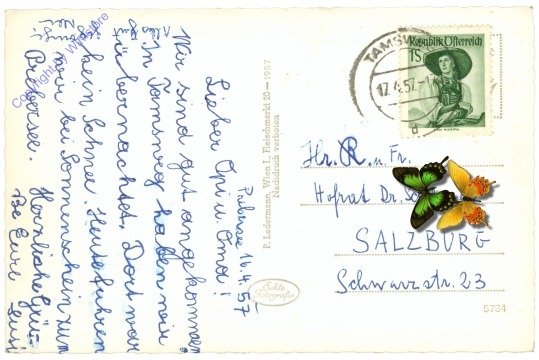 Prebersee 16.4.57
Lieber Opi u. Oma!
Wir sind gut angekommen.
In Tamsweg haben wir
übernachtet. Dort war
kein Schnee. Heute fuhren
wir bei Sonnenschein zum
Prebersee. Herzliche Grü-
ße Eure Susi
P. Ledermann, Wien I., Fleischmarkt 20 — 1957
Nachdruck verboten
Echte
Fotografie
TAMSWEG
17.4.57
a
Republik Österreich
1S
Hr. R. u. Fr.
Hofrat Dr.
SALZBURG
Schwarzstr. 23
5734
Copyright by Winstore